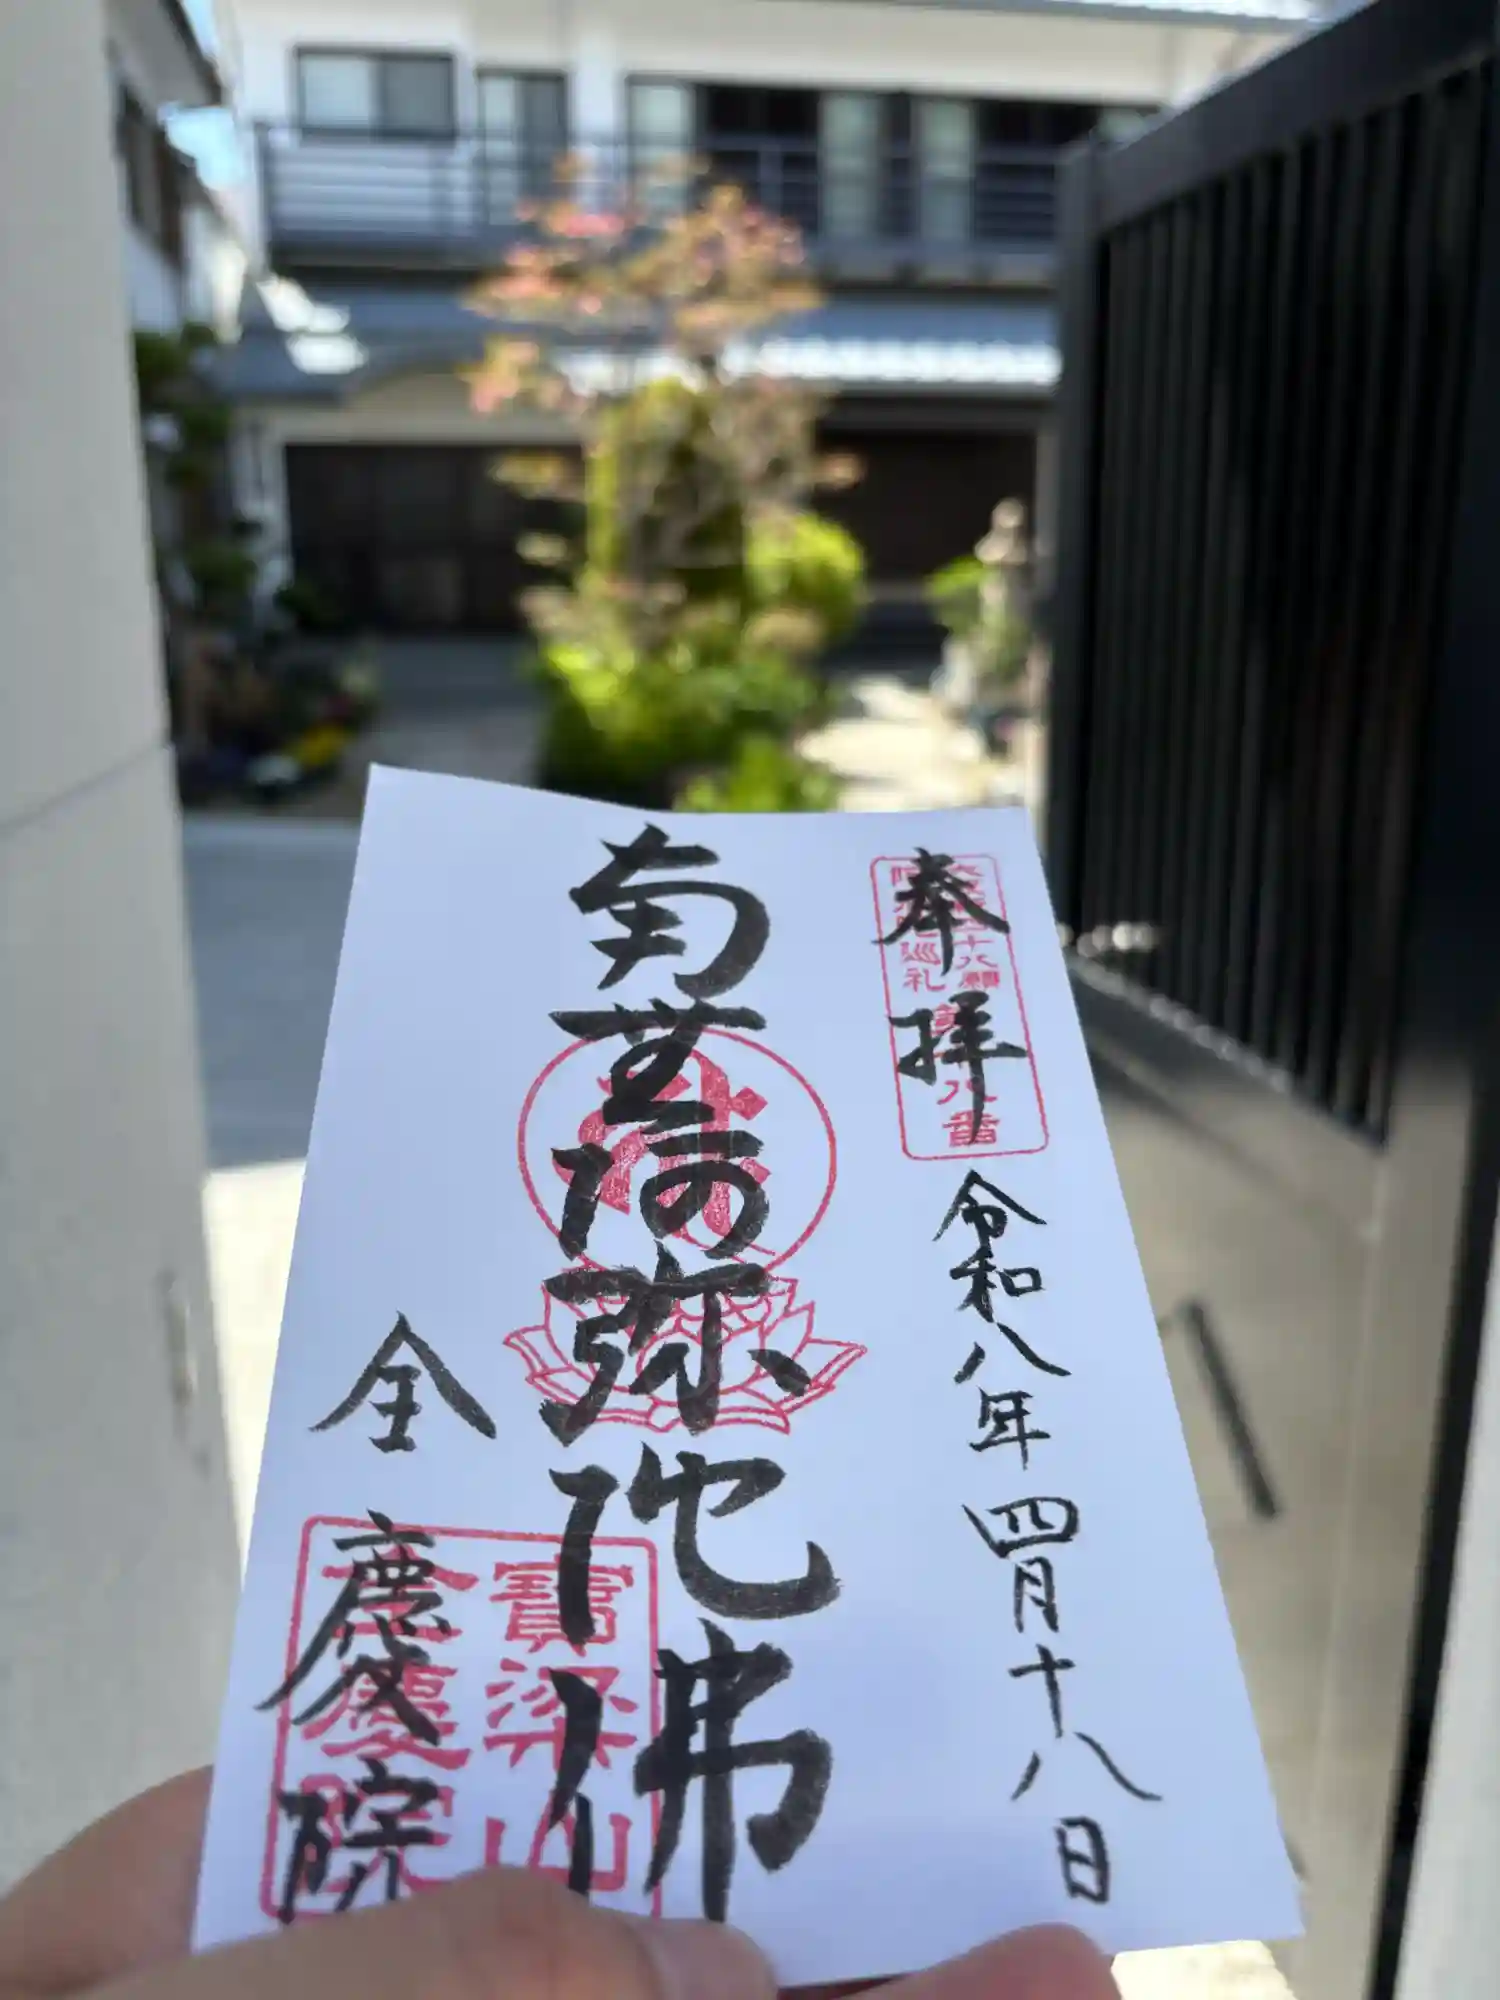 奉拝
四十八願
巡礼
八番
令和八年四月十八日
南無阿弥陀佛
全慶院
寶梁山
全慶院